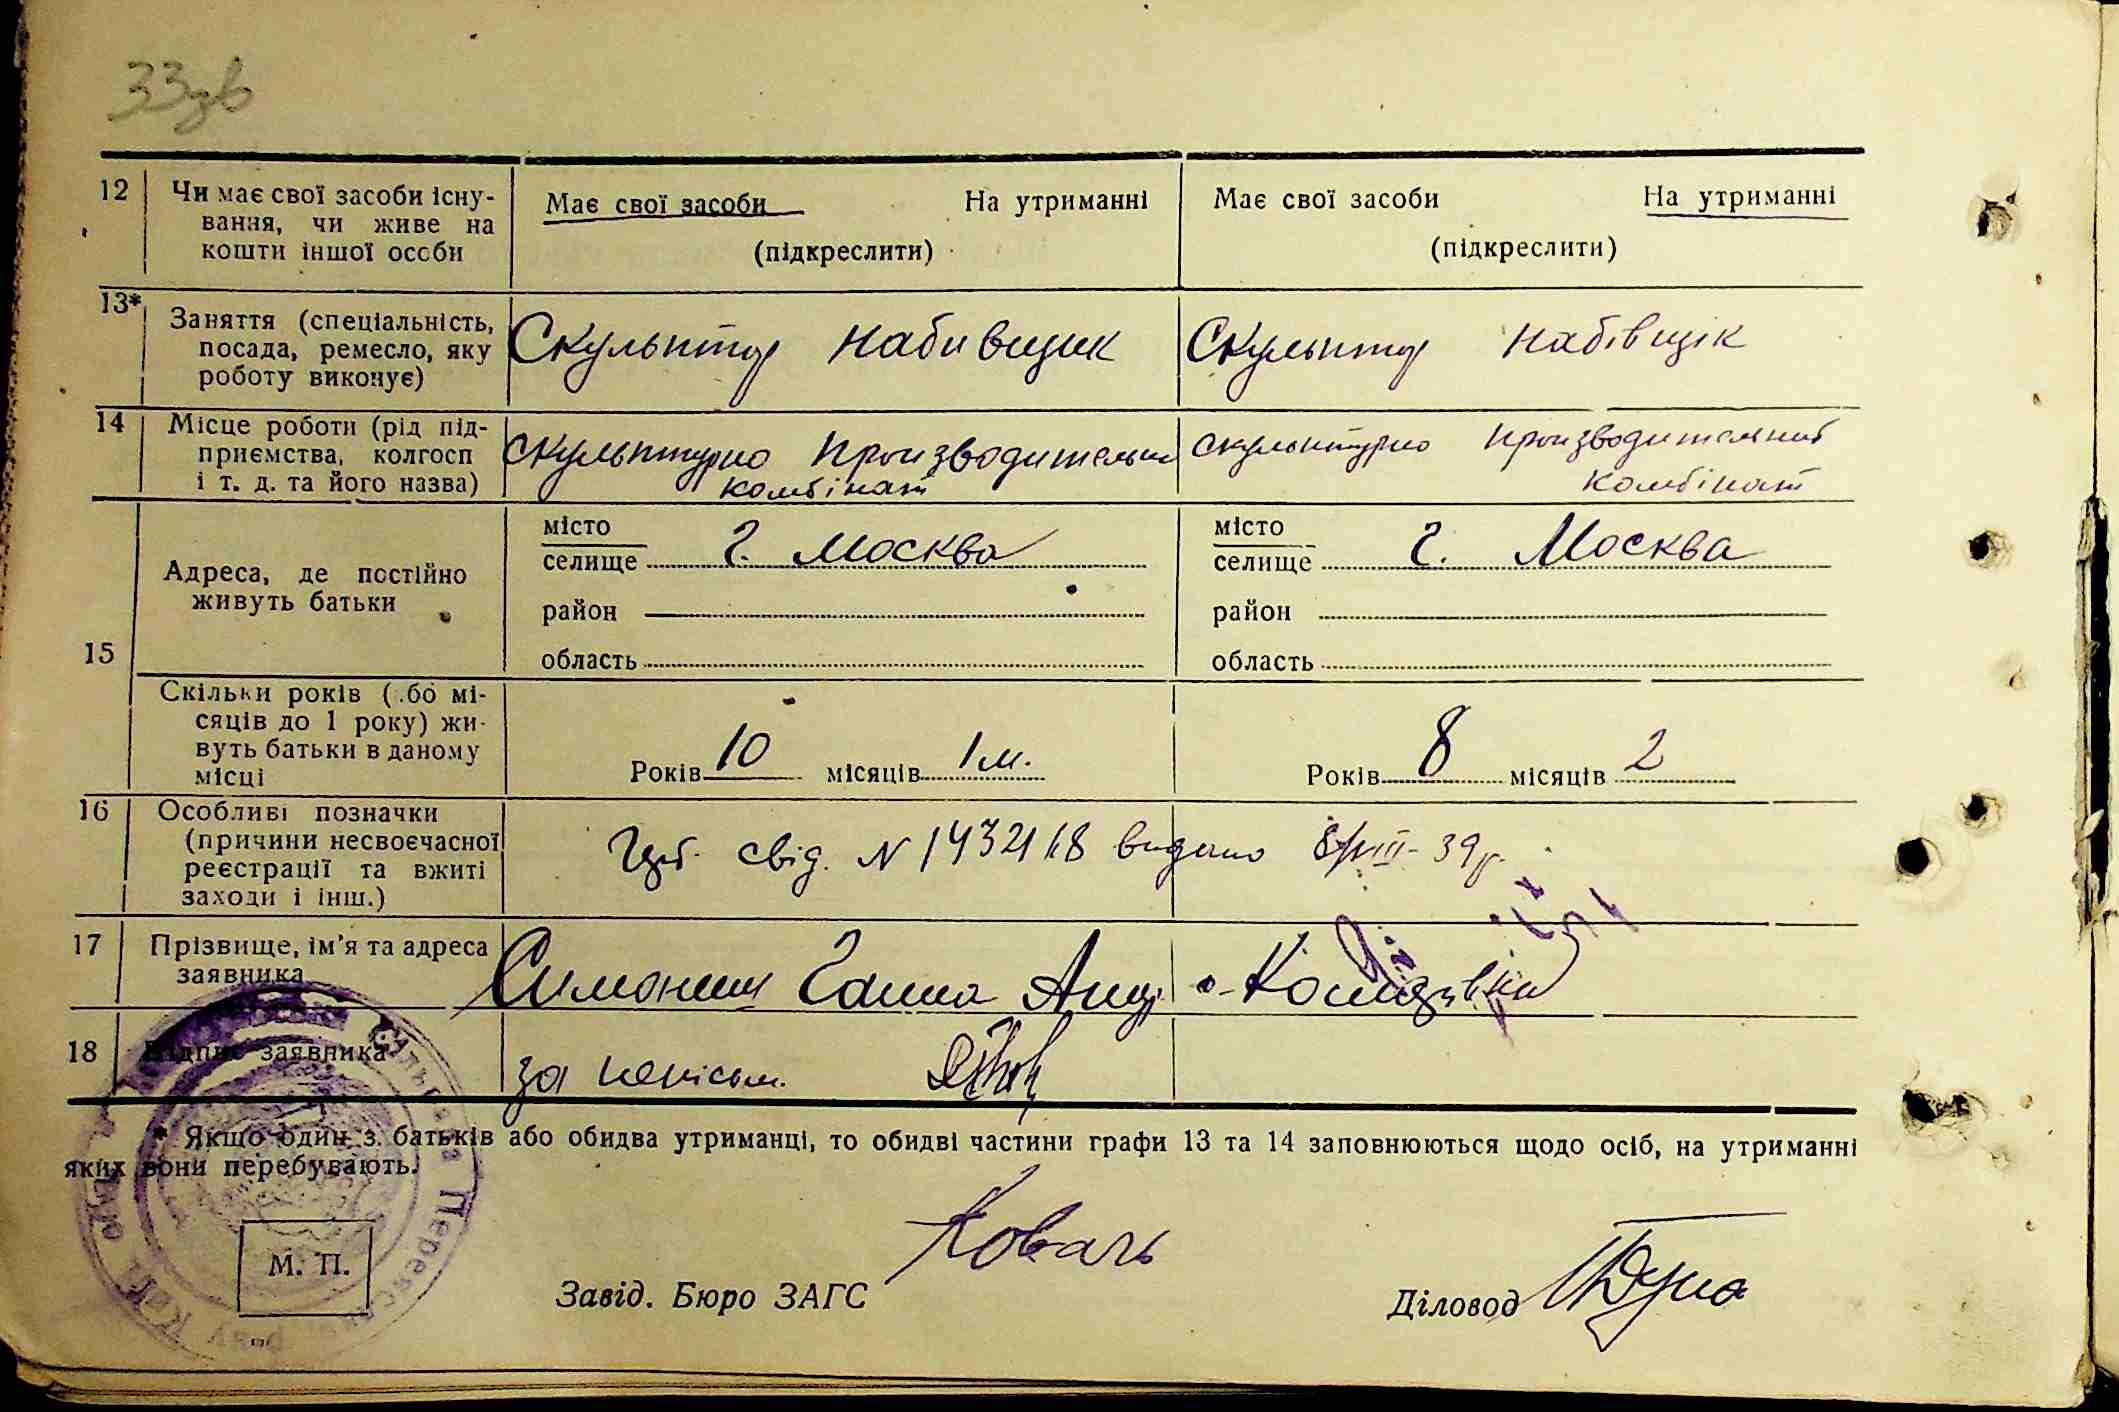 33зв
12 Чи має свої засоби існу- Має свої засоби На утриманні Має свої засоби На утриманні
вання, чи живе на (підкреслити) (підкреслити)
кошти іншої особи
13* Заняття (спеціальність, Скульптор набивщик Скульптор набівщік
посада, ремесло, яку
роботу виконує)
14 Місце роботи (рід під- Скульптурно производительн Скульптурно производительний
приємства, колгосп комбінат комбінат
і т. д. та його назва)
15 Адреса, де постійно місто місто
живуть батьки селище г. Москва селище г. Москва
район район
область область
Скільки років (або мі-
сяців до 1 року) жи-
вуть батьки в даному Років 10 місяців 1 м. Років 8 місяців 2
місці
16 Особливі позначки
(причини несвоєчасної свід. N 1432118 видано 8/VIII-39р.
реєстрації та вжиті
заходи і інш.)
17 Прізвище, ім'я та адреса Ганна
заявника
18 Підпис заявника за неписьм.
* Якщо один з батьків або обидва утриманці, то обидві частини графи 13 та 14 заповнюються щодо осіб, на утриманні
яких вони перебувають.
М. П.
Завід. Бюро ЗАГС Коваль Діловод